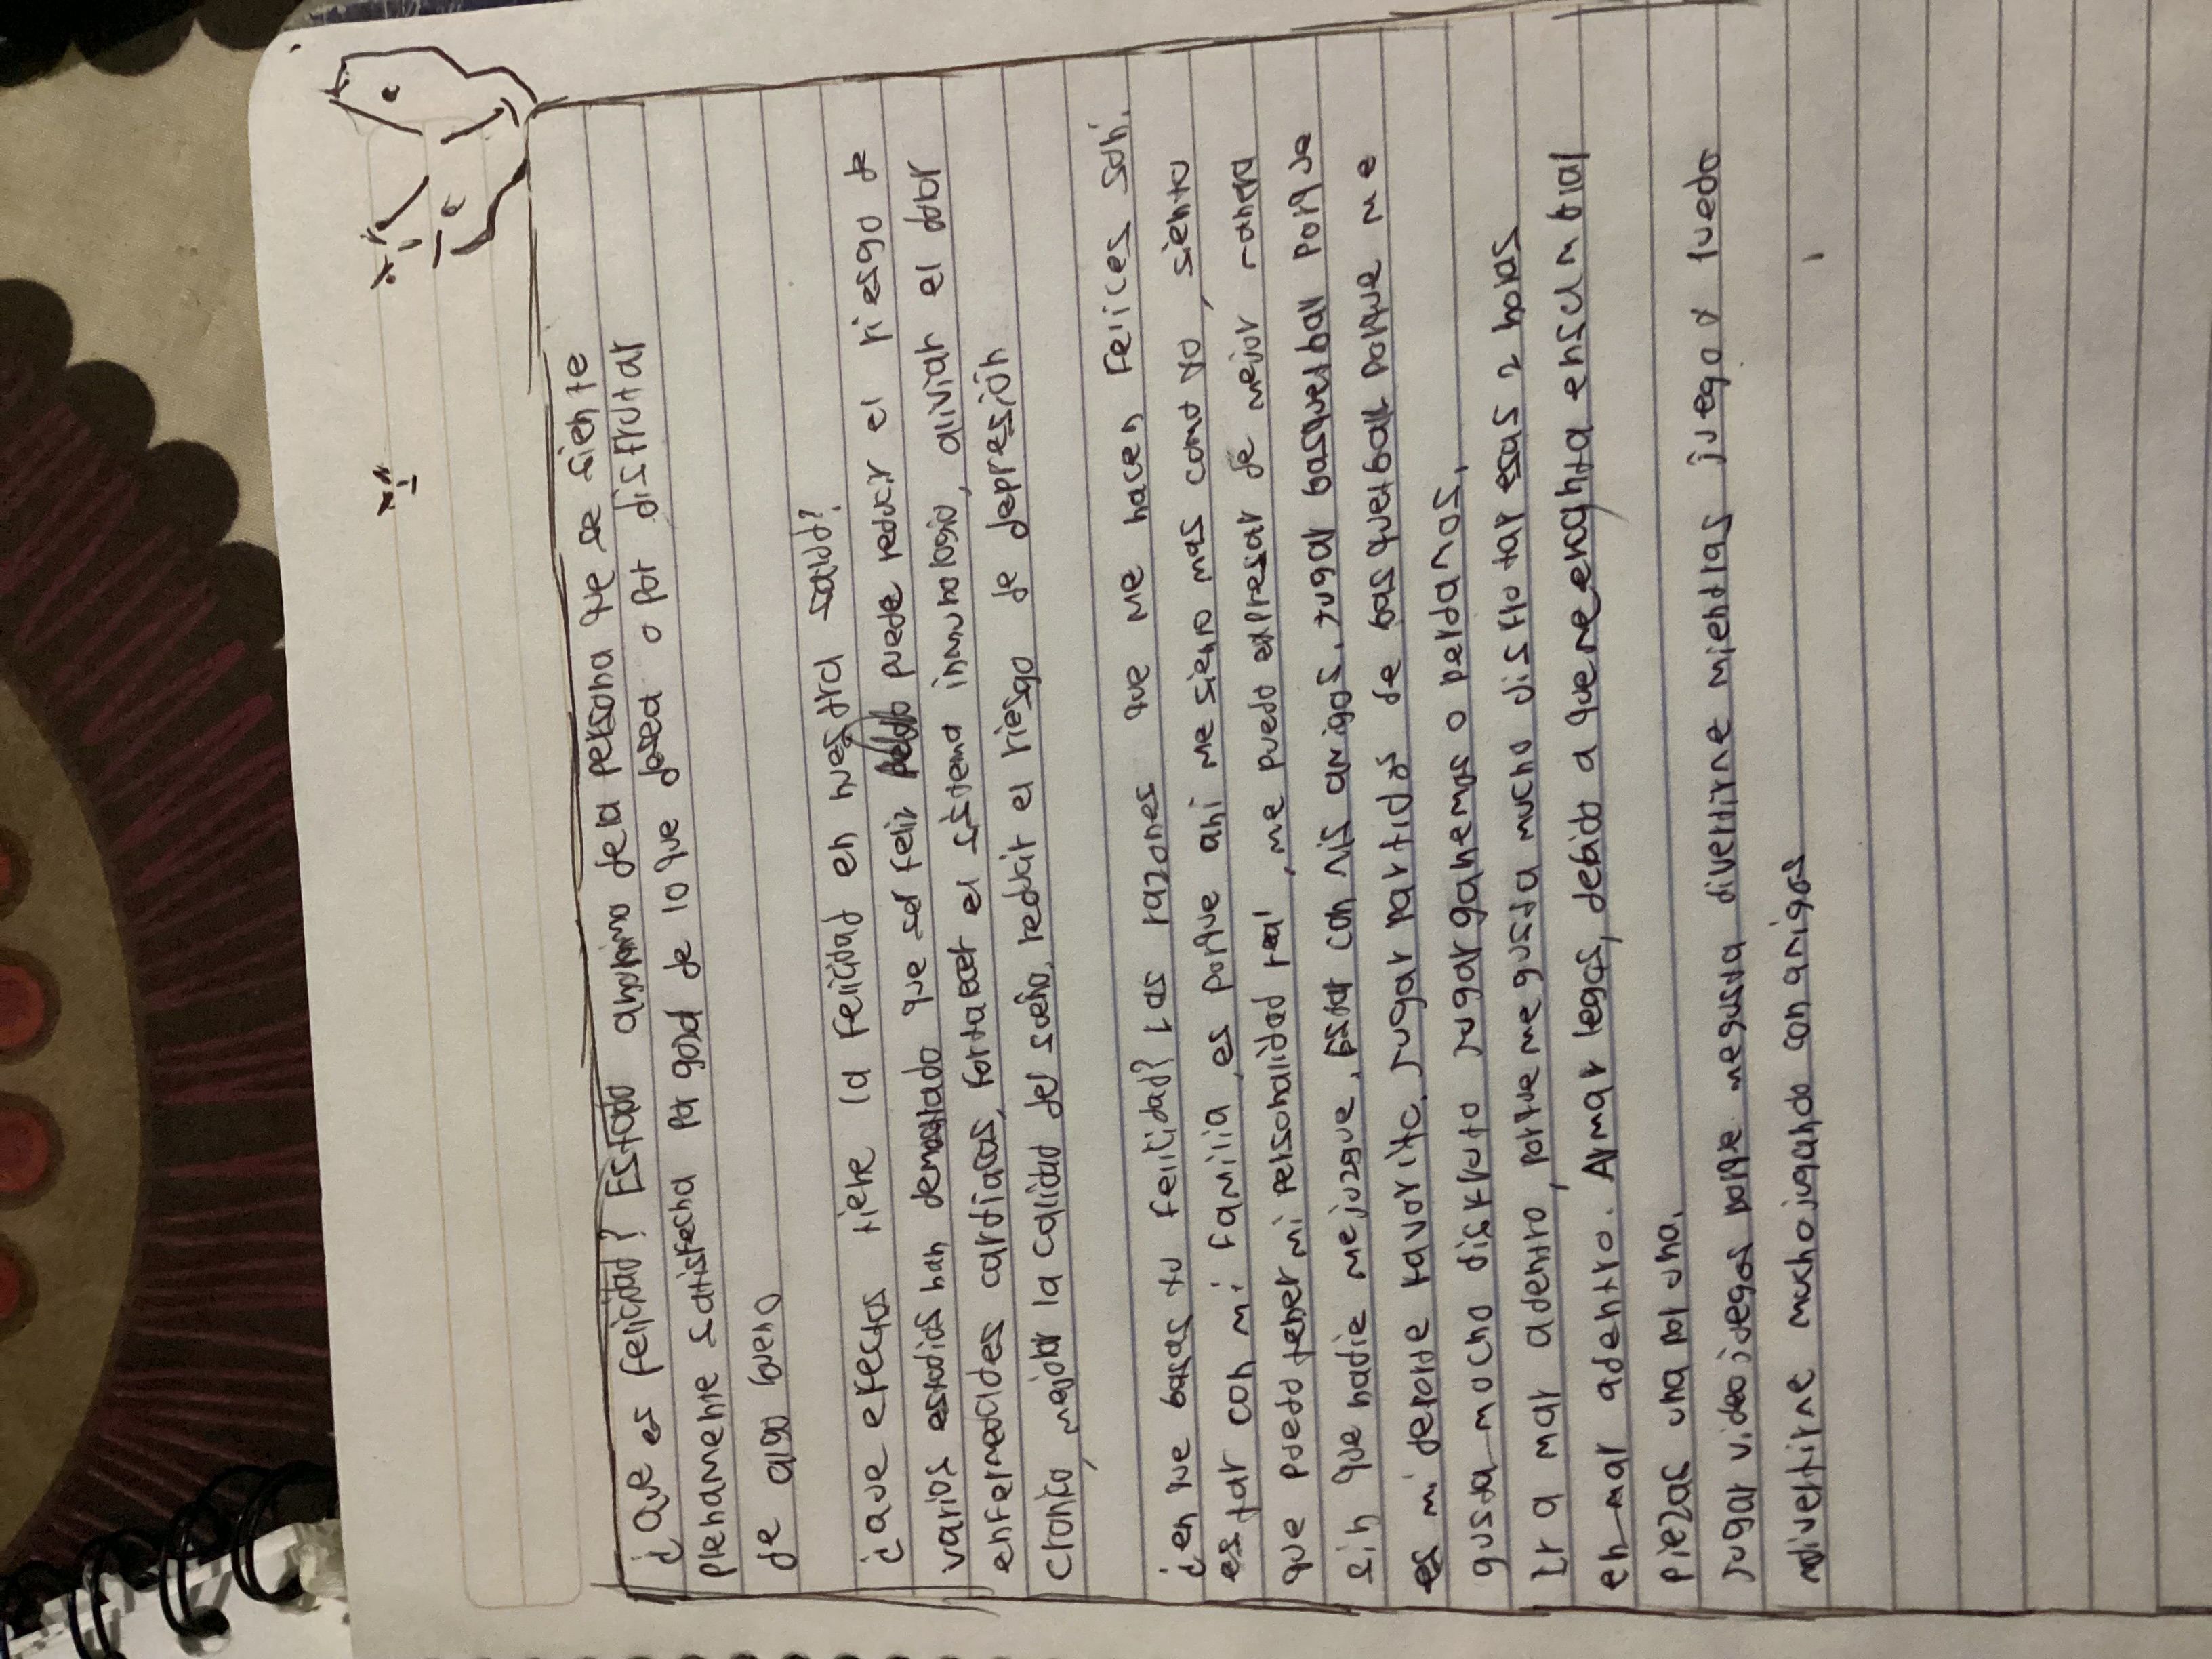 ¿Que es felicidad? Estado anonimo de la persona que se siente
plenamente satisfecha por gozd de lo que desea o por disfrutar
de algo bueno
¿Que efectos tiene la felicidad en nuestra salud?
varios estudios han demostrado que ser feliz puede reducir el riesgo de
enfermedades cardiacas, fortalecer el sistema inmunologio, aliviar el dolor
cronico, mejorar la calidad del sueño, reducir el riesgo de depresión
¿en que basas tu felicidad? Las razones que me hacen felices son:
estar con mi familia, es porque ahi me siento mas como yo, siento
que puedo tener mi personalidad real, me puedo expresar de mejor manera
sin que nadie me juzgue. Estar con mis amigos. Jugar basquetball porque
es mi deporte favorito. Jugar partidos de basquetball porque me
gusta mucho disfruto jugar ganemos o perdamos.
Ir a mar adentro, porque me gusta mucho disfrutar esas 2 horas
en mar adentro. Armar legos, debido a que me encanta ensamblar
piezas una por una.
Jugar videojuegos porque me gusta divertirme mientras juego y puedo
divertirme mucho jugando con amigos